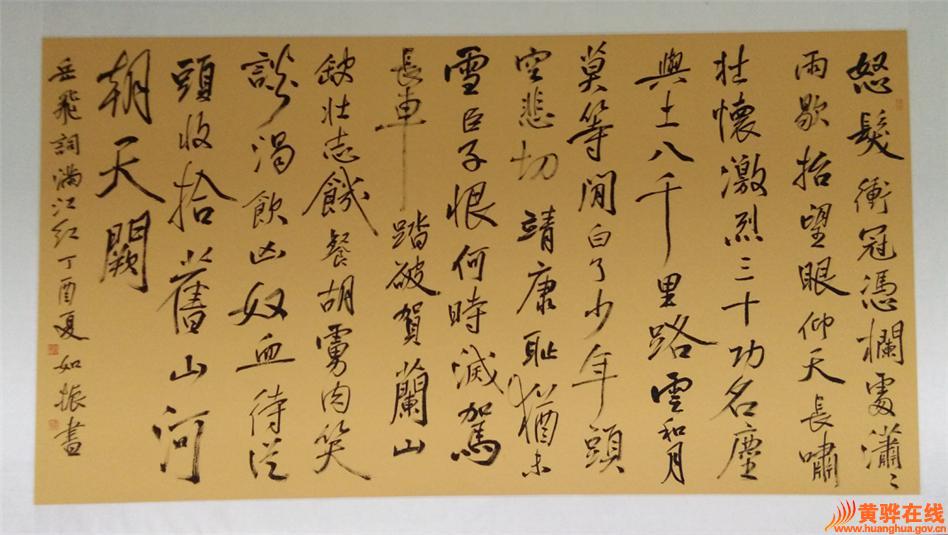 怒髮衝冠憑欄處瀟〻
雨歇抬望眼仰天長嘯
壯懷激烈三十功名塵
與土八千里路雲和月
莫等閒白了少年頭
空悲切靖康恥猶未
雪臣子恨何時滅駕
長車踏破賀蘭山
缺壯志餓餐胡虜肉笑
談渴飲凶奴血待從
頭收拾舊山河
朝天闕
岳飛詞滿江紅丁酉夏如振書
黄骅在线
www.huanghua.gov.cn